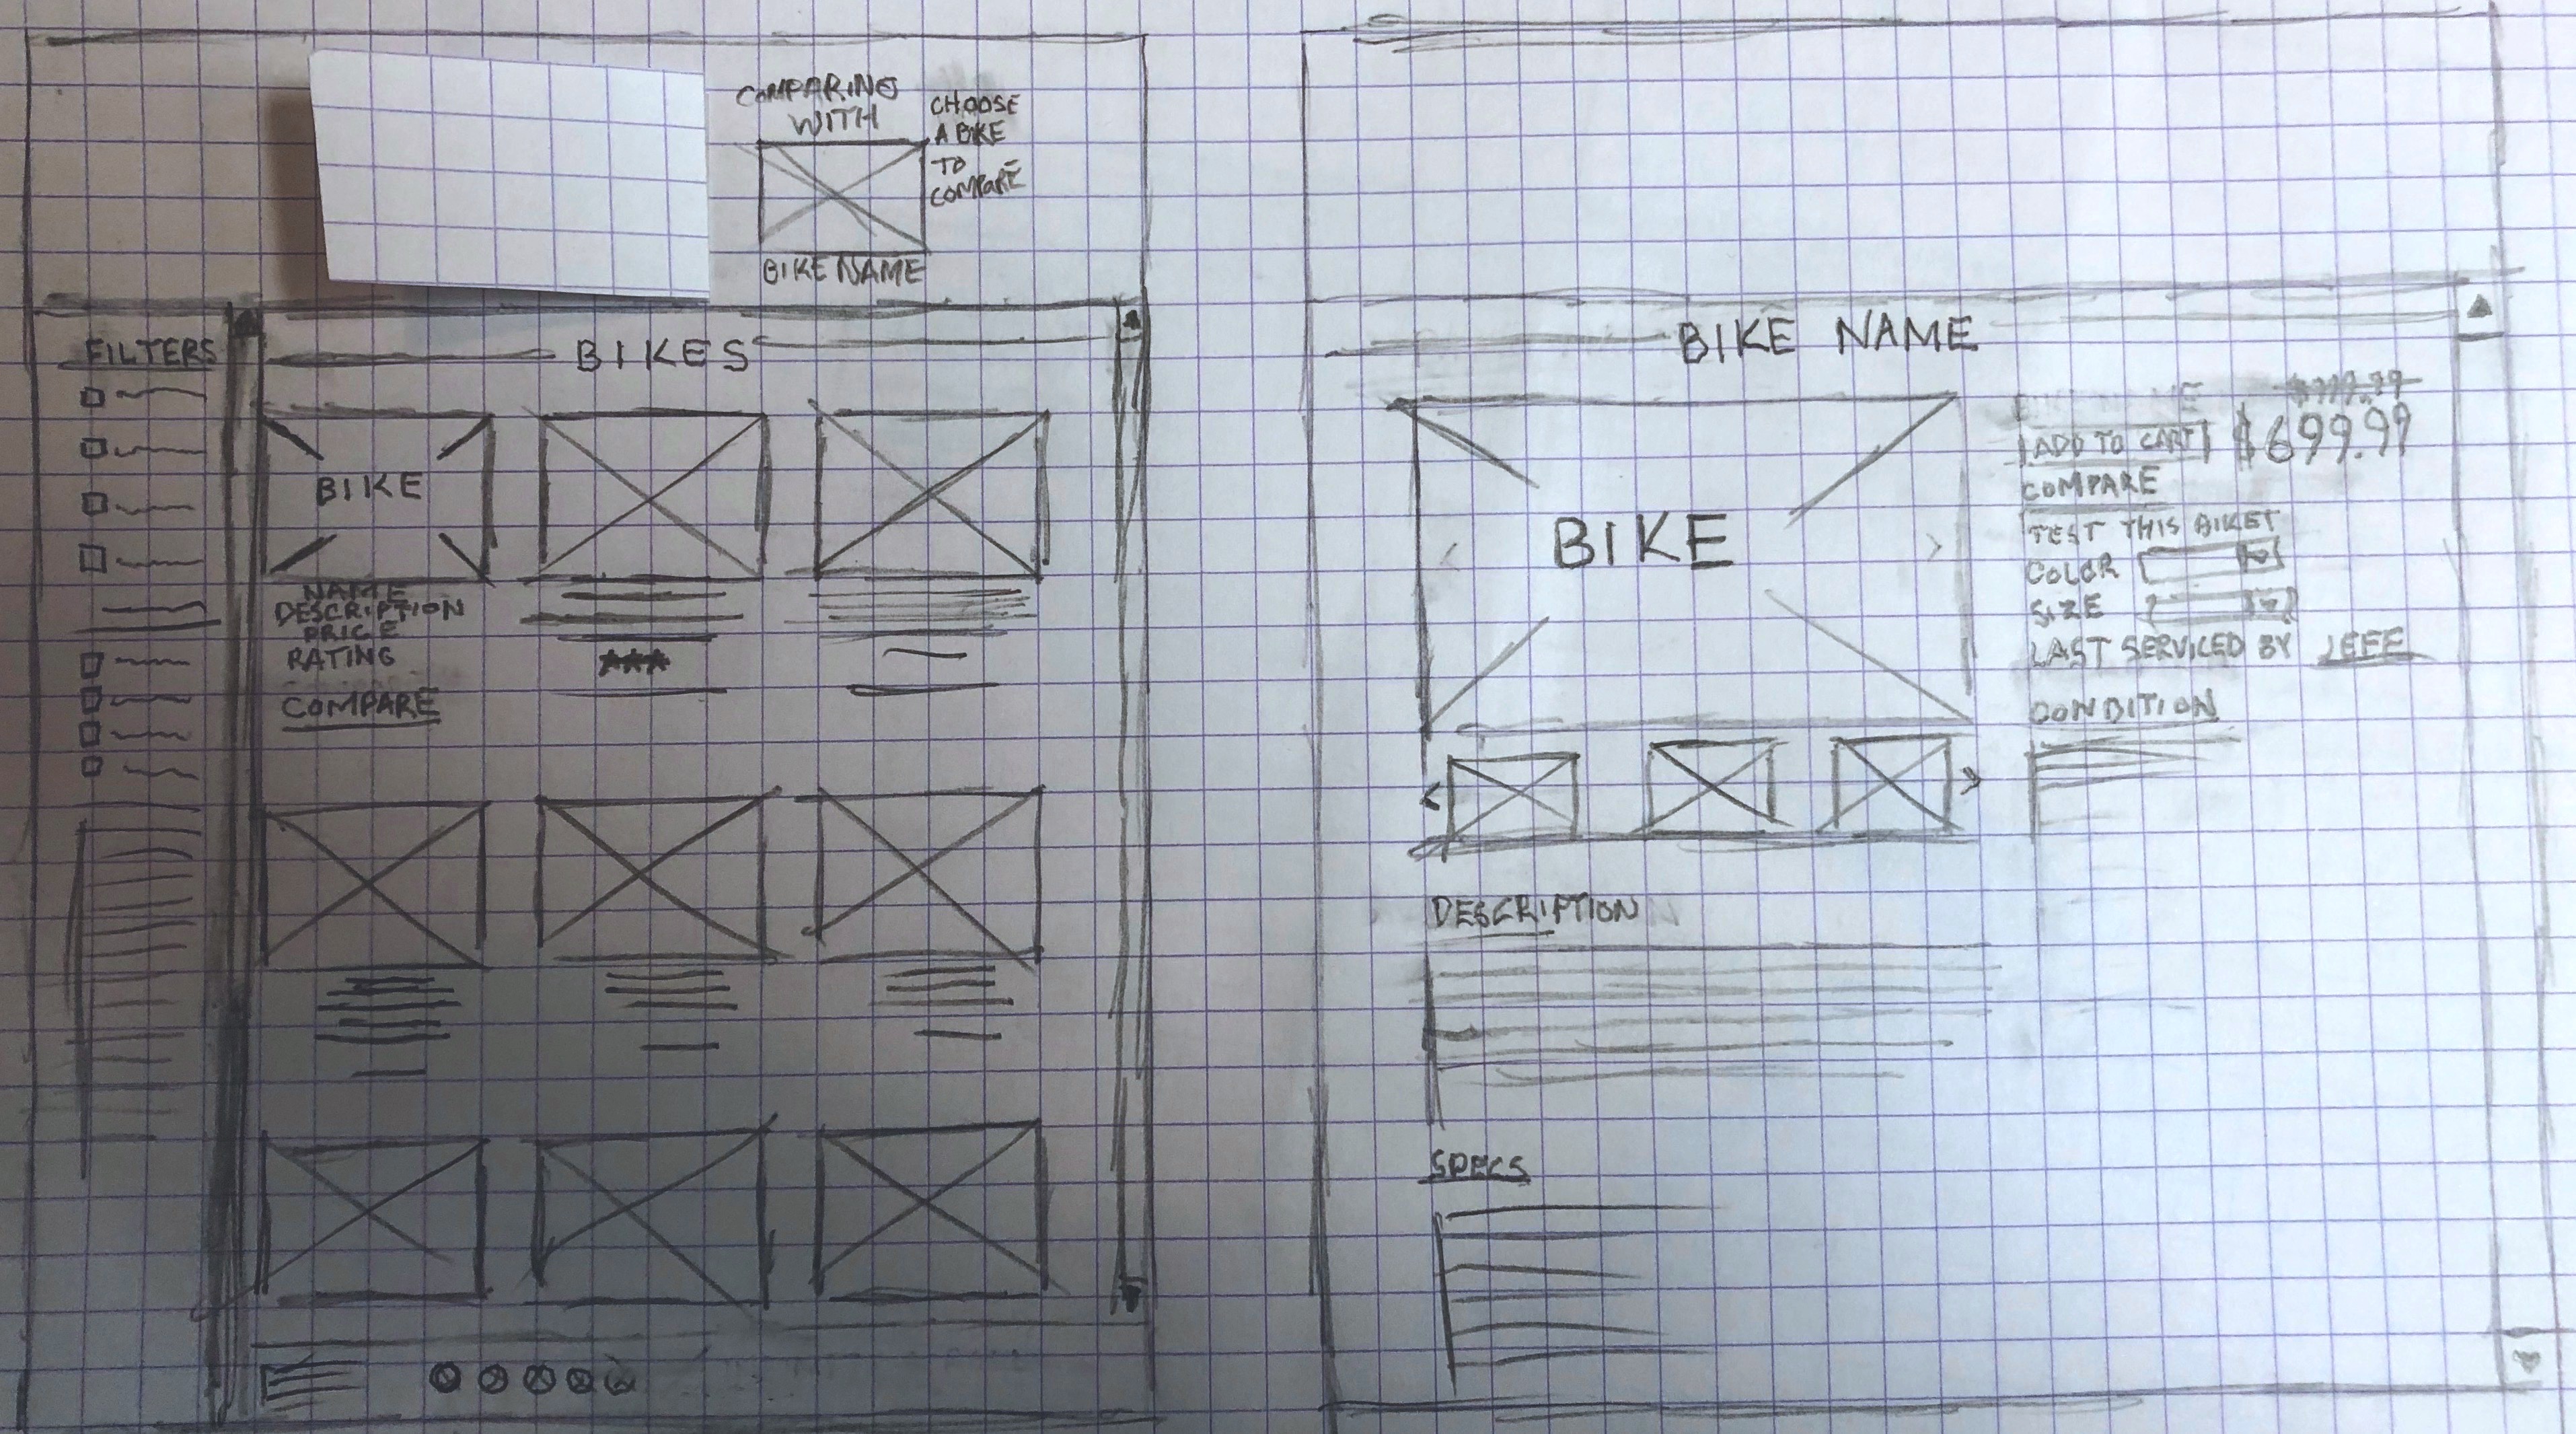 COMPARING
WITH
CHOOSE
A BIKE
TO
COMPARE
BIKE NAME
FILTERS
BIKES
BIKE
NAME
DESCRIPTION
PRICE
RATING
COMPARE
BIKE NAME
BIKE
ADD TO CART $699.99
COMPARE
TEST THIS BIKE
COLOR
SIZE
LAST SERVICED BY JEFF
CONDITION
DESCRIPTION
SPECS